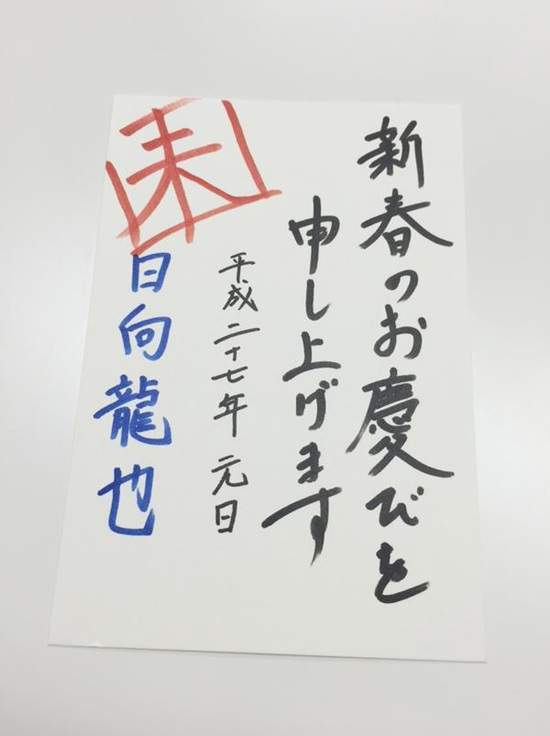 新春のお慶びを
申し上げます
平成二十七年 元日
未
日向龍也